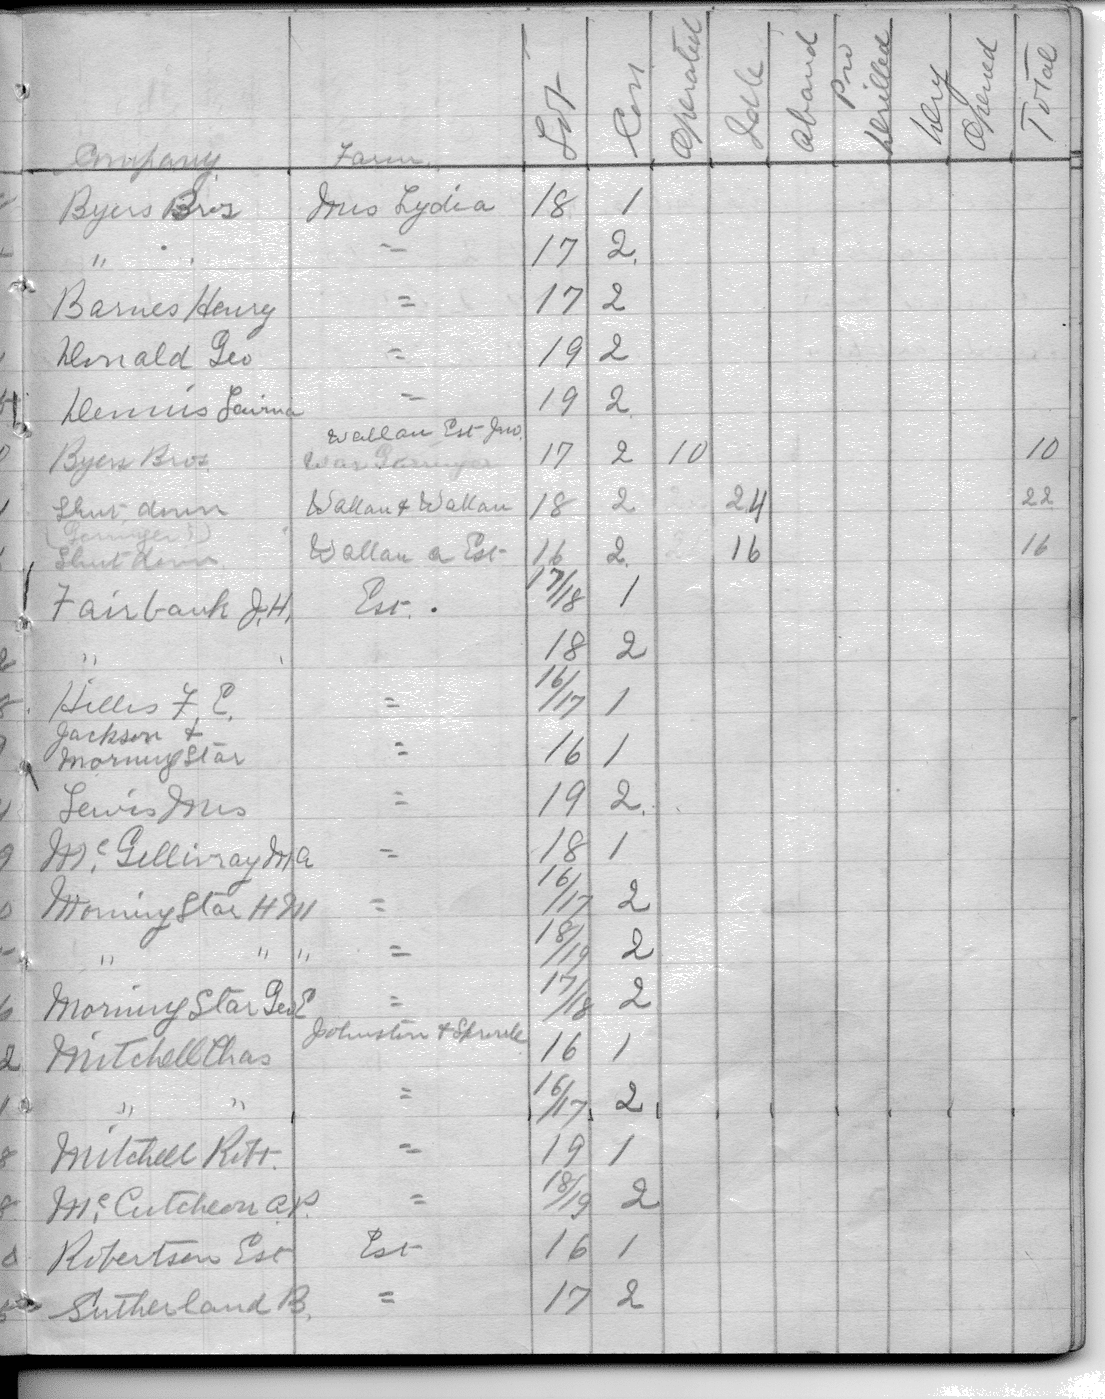 Company Farm Lot Con Operated Idle Aband Pro Drilled Dry Opened Total
Byers Bros Mrs Lydia 18 1
" — 17 2
Barnes Henry = 17 2
Donald Geo = 19 2
Dennis = 19 2
Wallan Est Jno.
Byers Bros. 17 2 10 10
Shut down Wallan & Wallan 18 2 24 22
Shut down Wallan a Est 16 2 16 16
Fairbank J.H. Est. 17/18 1
" 18 2
Hillis F. E. = 16/17 1
Jackson &
Morning Star = 16 1
Lewis Mrs = 19 2
Mc. Gillivray M.A = 18 1
Morning Star H M = 16/17 2
" " " = 18/19 2
Morning Star Geo E = 17/18 2
Mitchell Chas Johnston & 16 1
" " = 16/17 2
Mitchell Robt. = 19 1
Mc. Cutcheon A.P. = 18/19 2
Robertson Est Est 16 1
Sutherland B. = 17 2